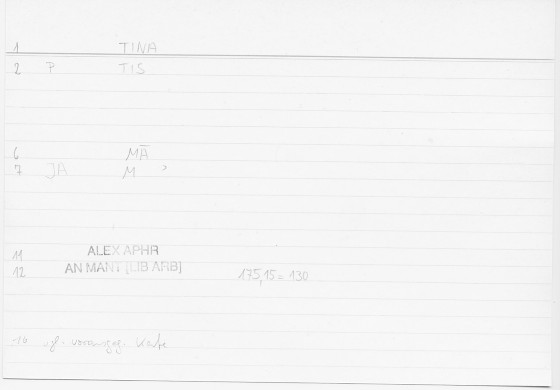 1 TINA
2 P TIS
6 MĀ
7 JA M ?
11 ALEX APHR
12 AN MANT [LIB ARB] 175,15 = 130
-10 vgl. vorausgeg. Karte